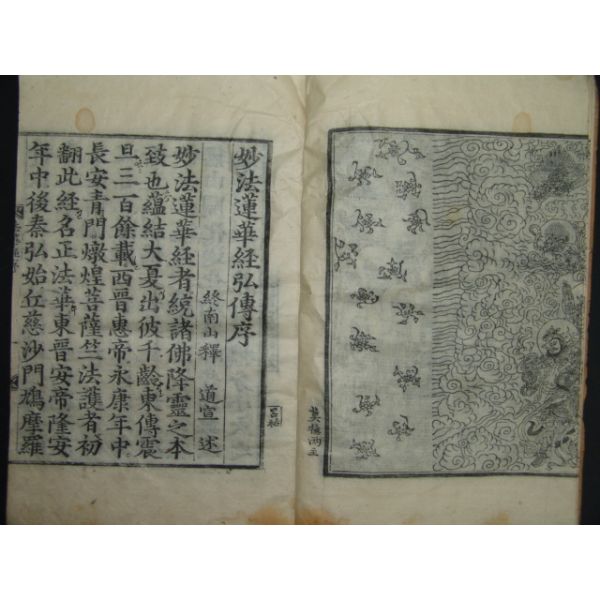 妙法蓮華経弘傳序
終南山釋 道宣 述
妙法蓮華経者統諸佛降靈之本
致也蘊結大夏出彼千齡東傳震
旦三百餘載西晉惠帝永康年中
長安青門燉煌菩薩竺法護者初
翻此経名正法華東晉安帝隆安
年中後秦弘始丘慈沙門鳩摩羅